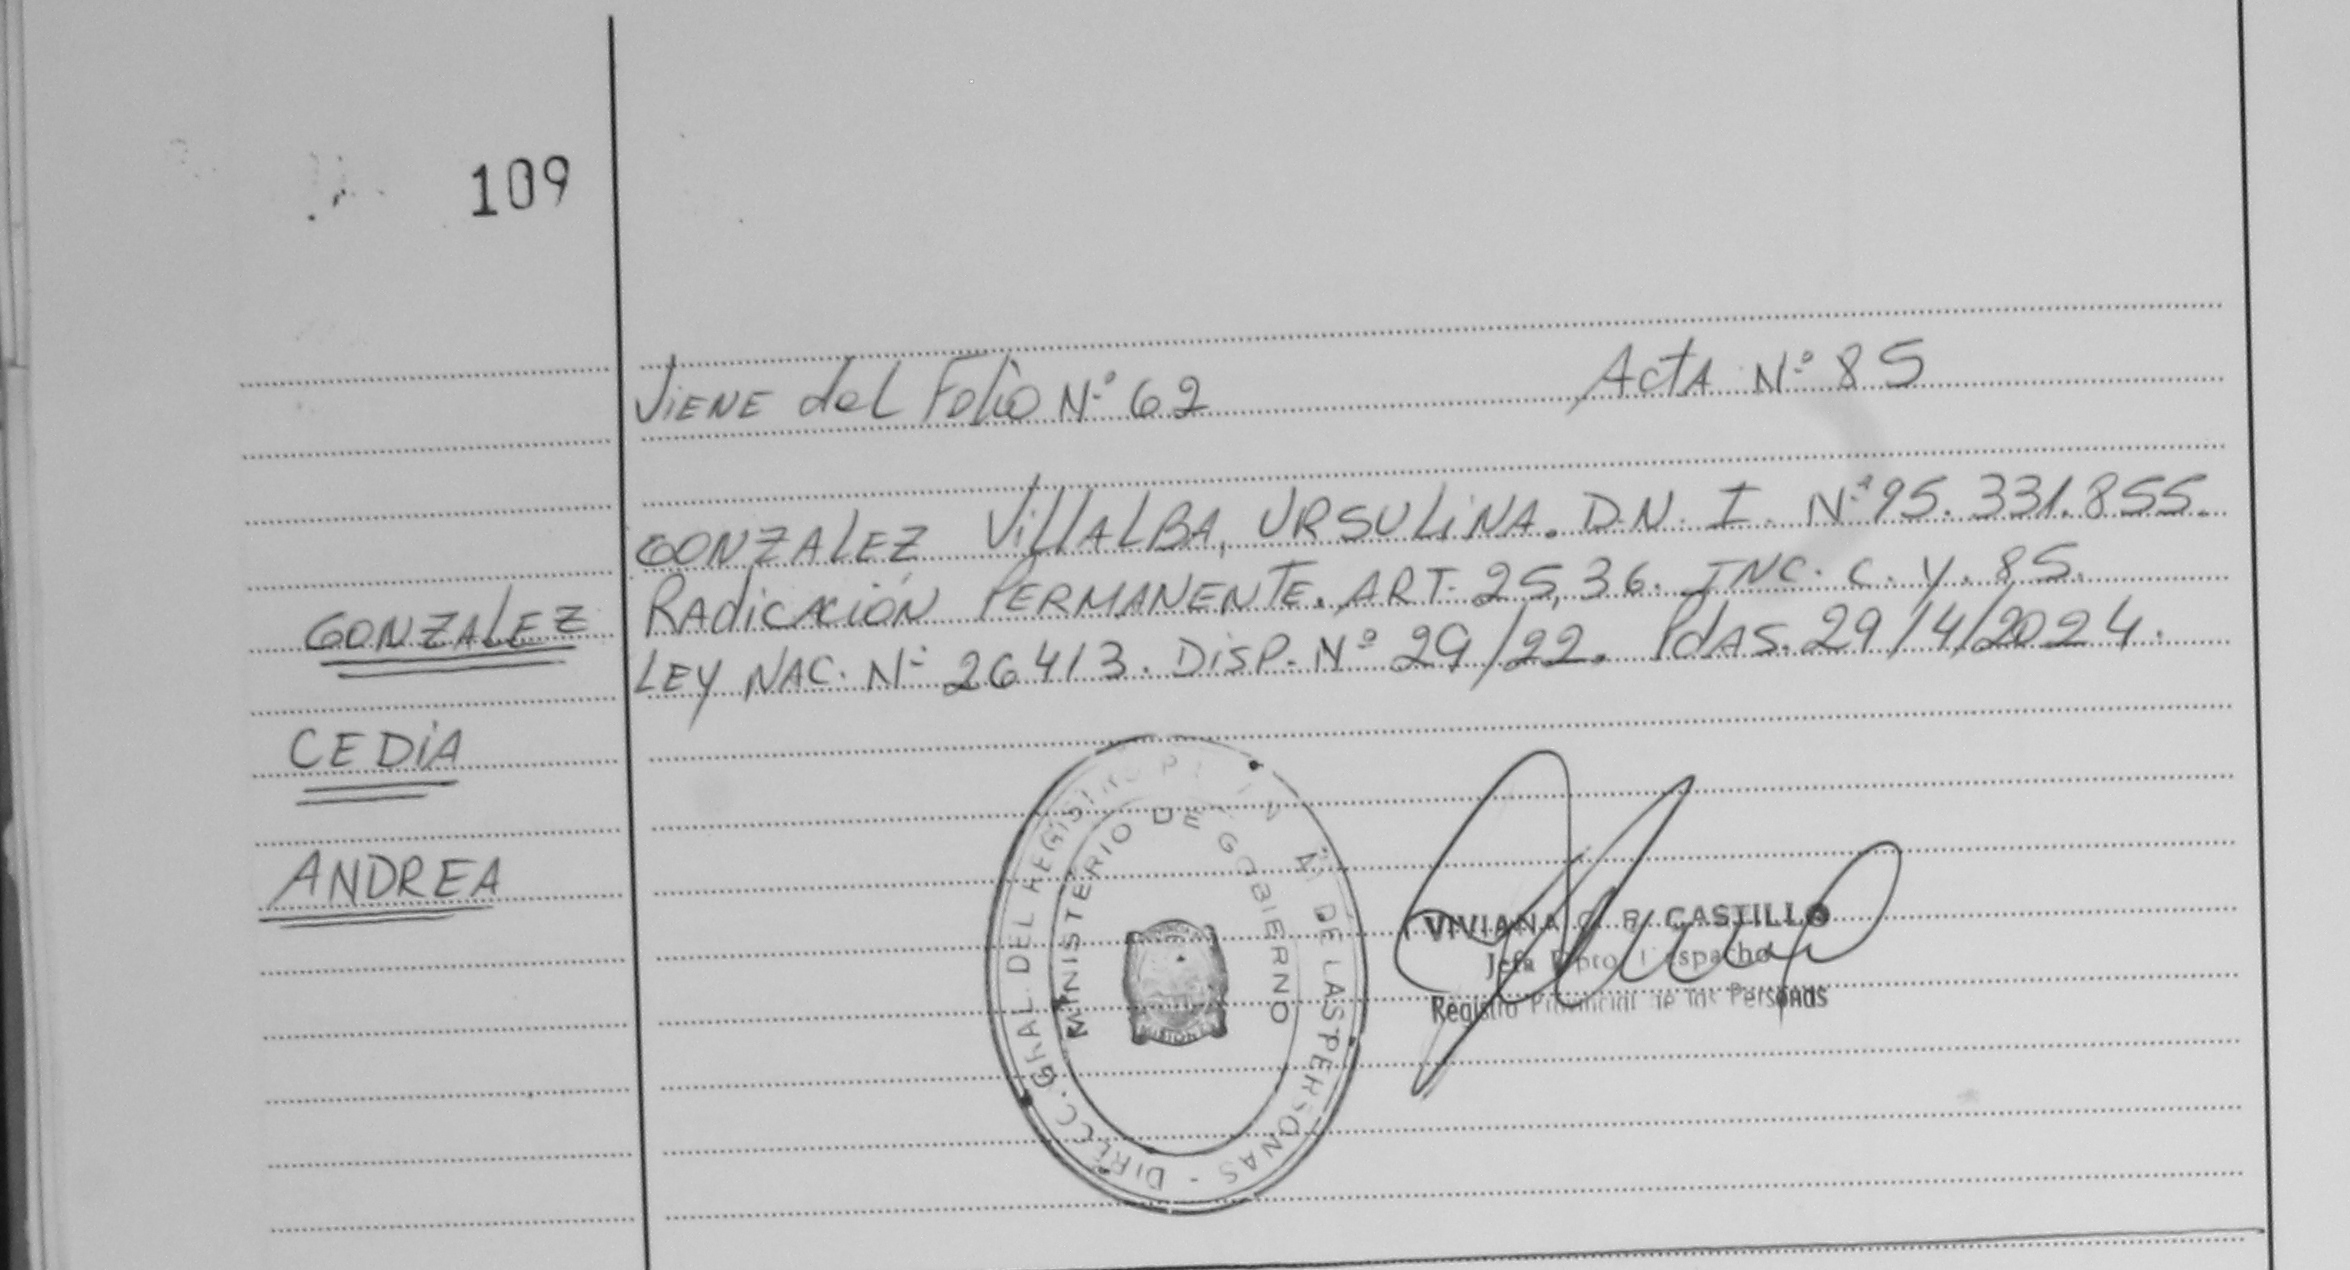 109
Viene del Folio Nº 62
Acta Nº 85
GONZALEZ
CEDIA
ANDREA
GONZALEZ VillALBA, URSULINA. D.N.I. Nº 95.331.855.
RADICACIÓN PERMANENTE. ART. 25, 36. INC. C. Y. 85.
LEY NAC. Nº 26413. DISP. Nº 29/22. PdAS. 29/4/2024.
DIRECC. GRAL. DEL REGISTRO DE LAS PERSONAS -
MINISTERIO DE GOBIERNO
MISIONES
VIVIANA CASTILLO
Jefa Dpto. Despacho
Registro Provincial de las Personas